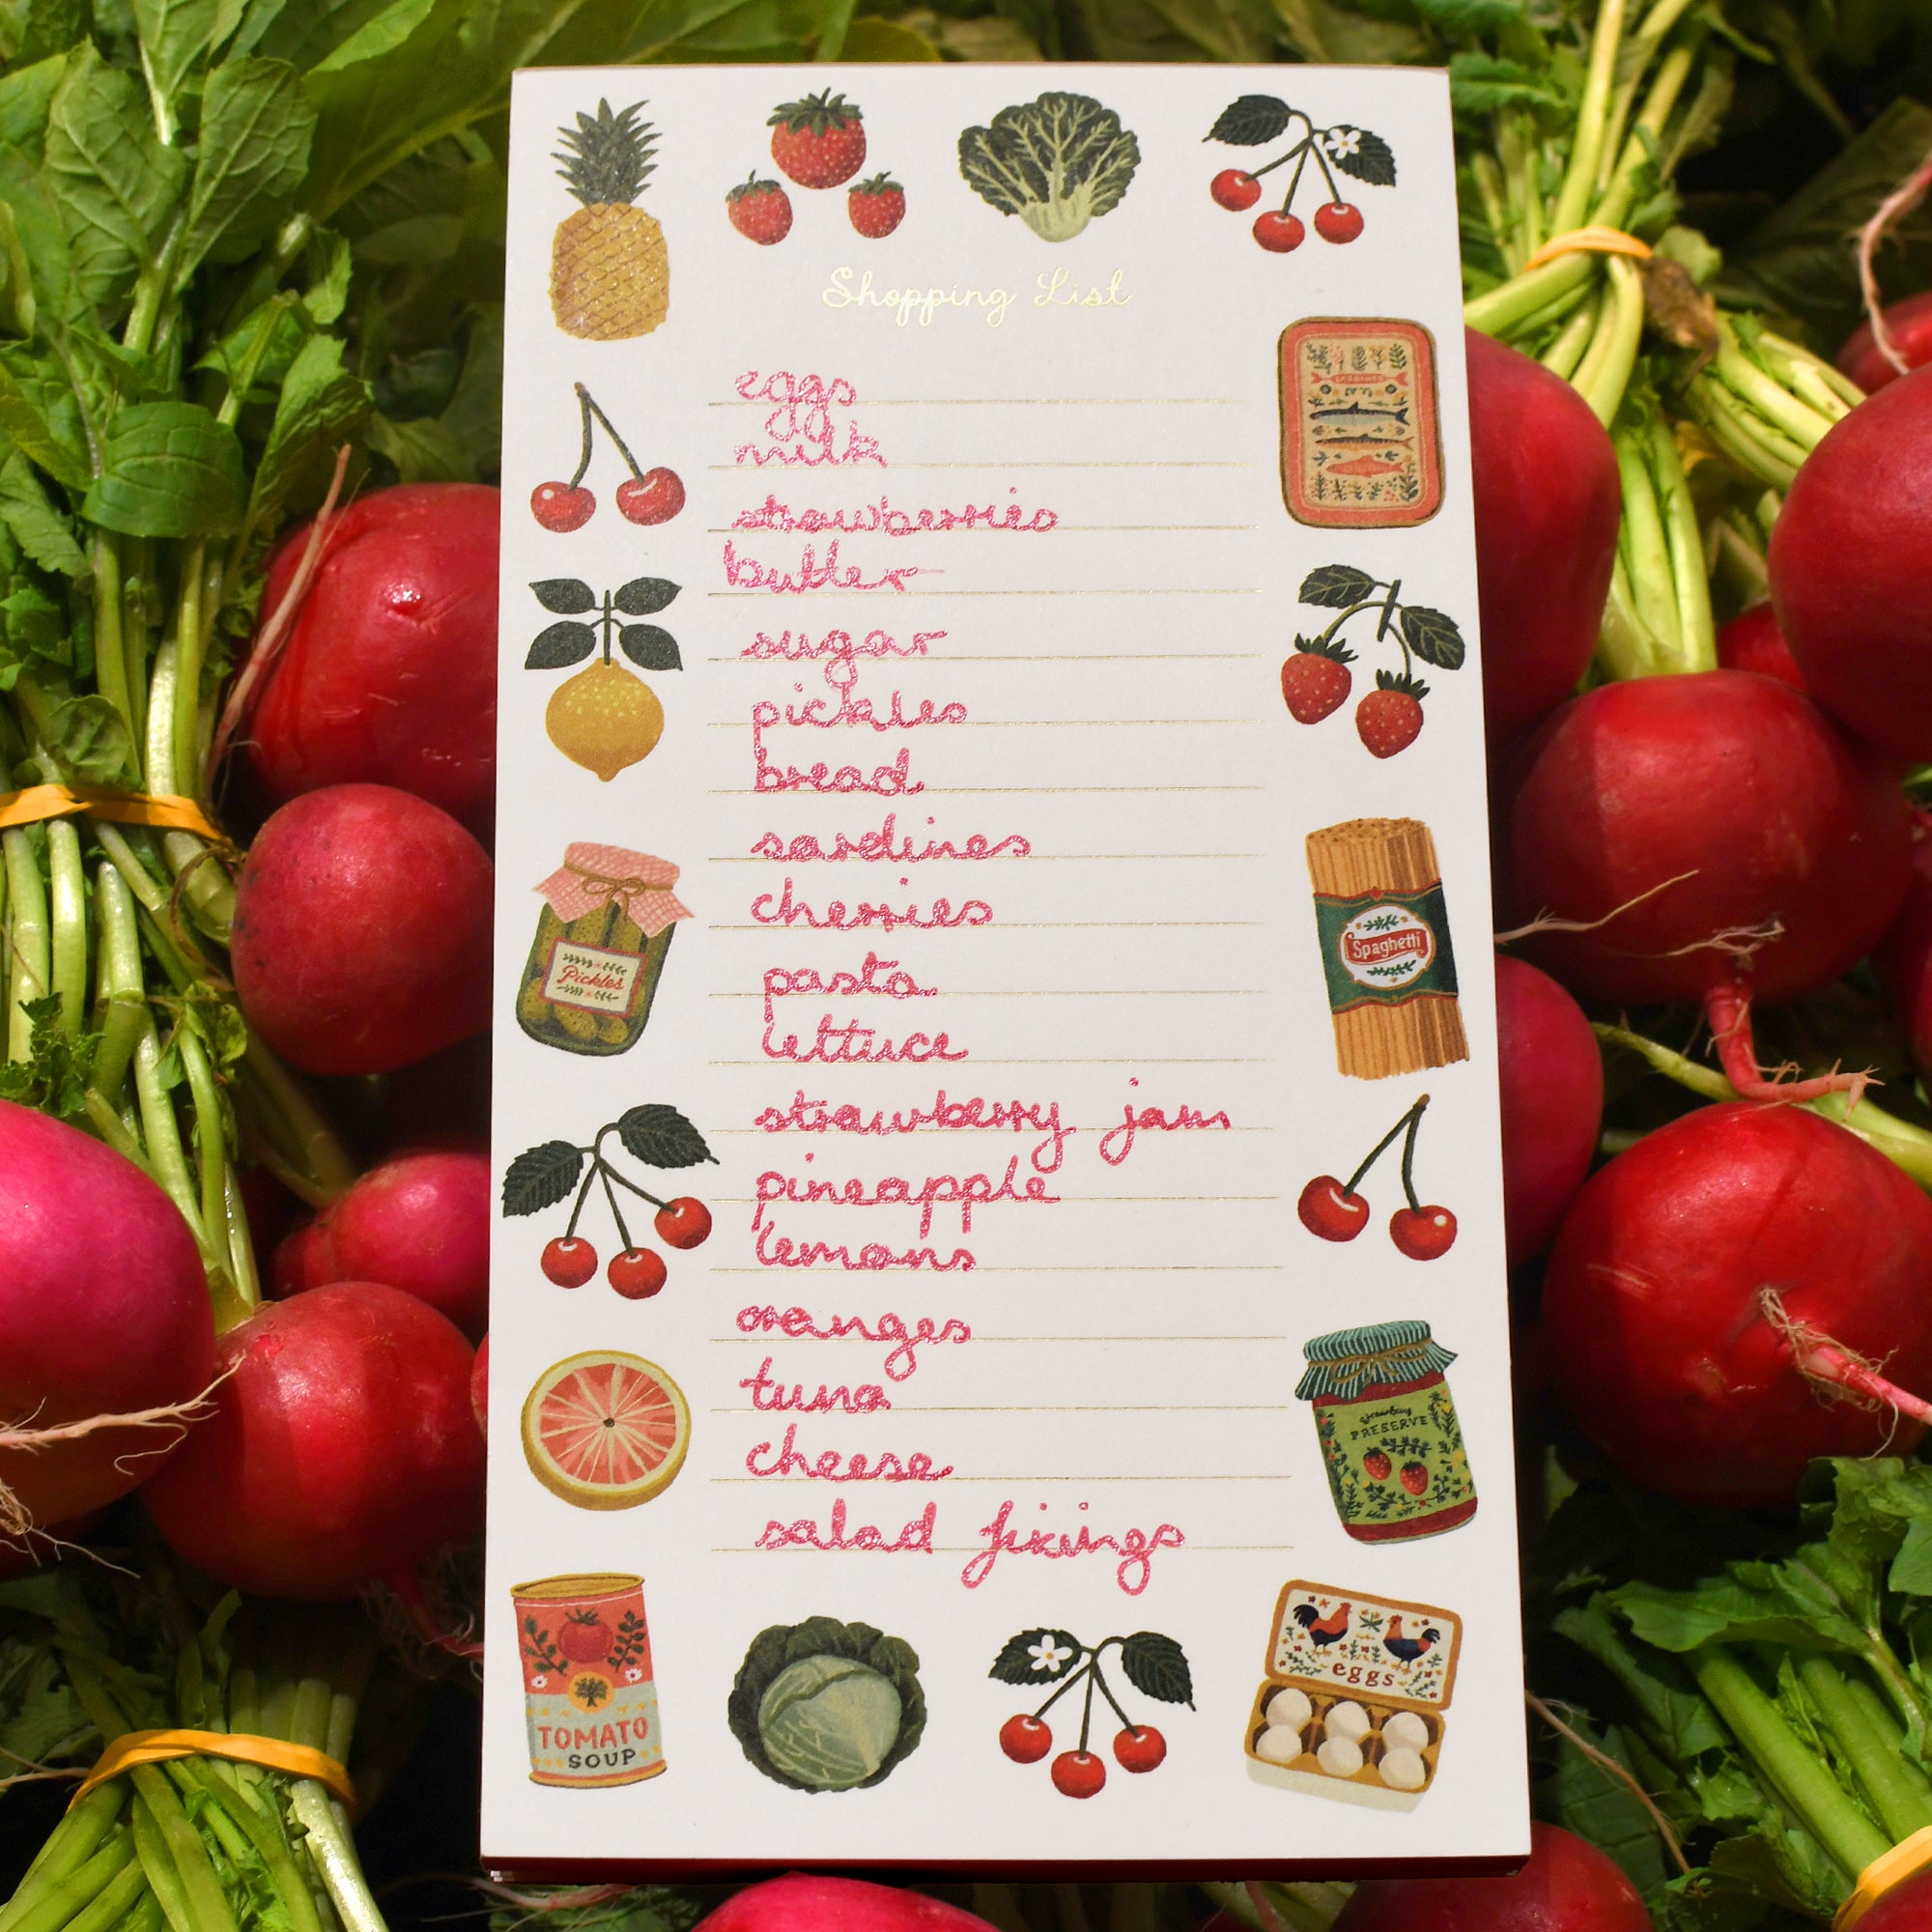 Shopping List
eggs
milk
strawberries
butter
sugar
pickles
bread
sardines
cherries
Pickles
Spaghetti
pasta
lettuce
strawberry jam
pineapple
lemons
oranges
tuna
strawberry
PRESERVE
cheese
salad fixings
TOMATO
SOUP
eggs